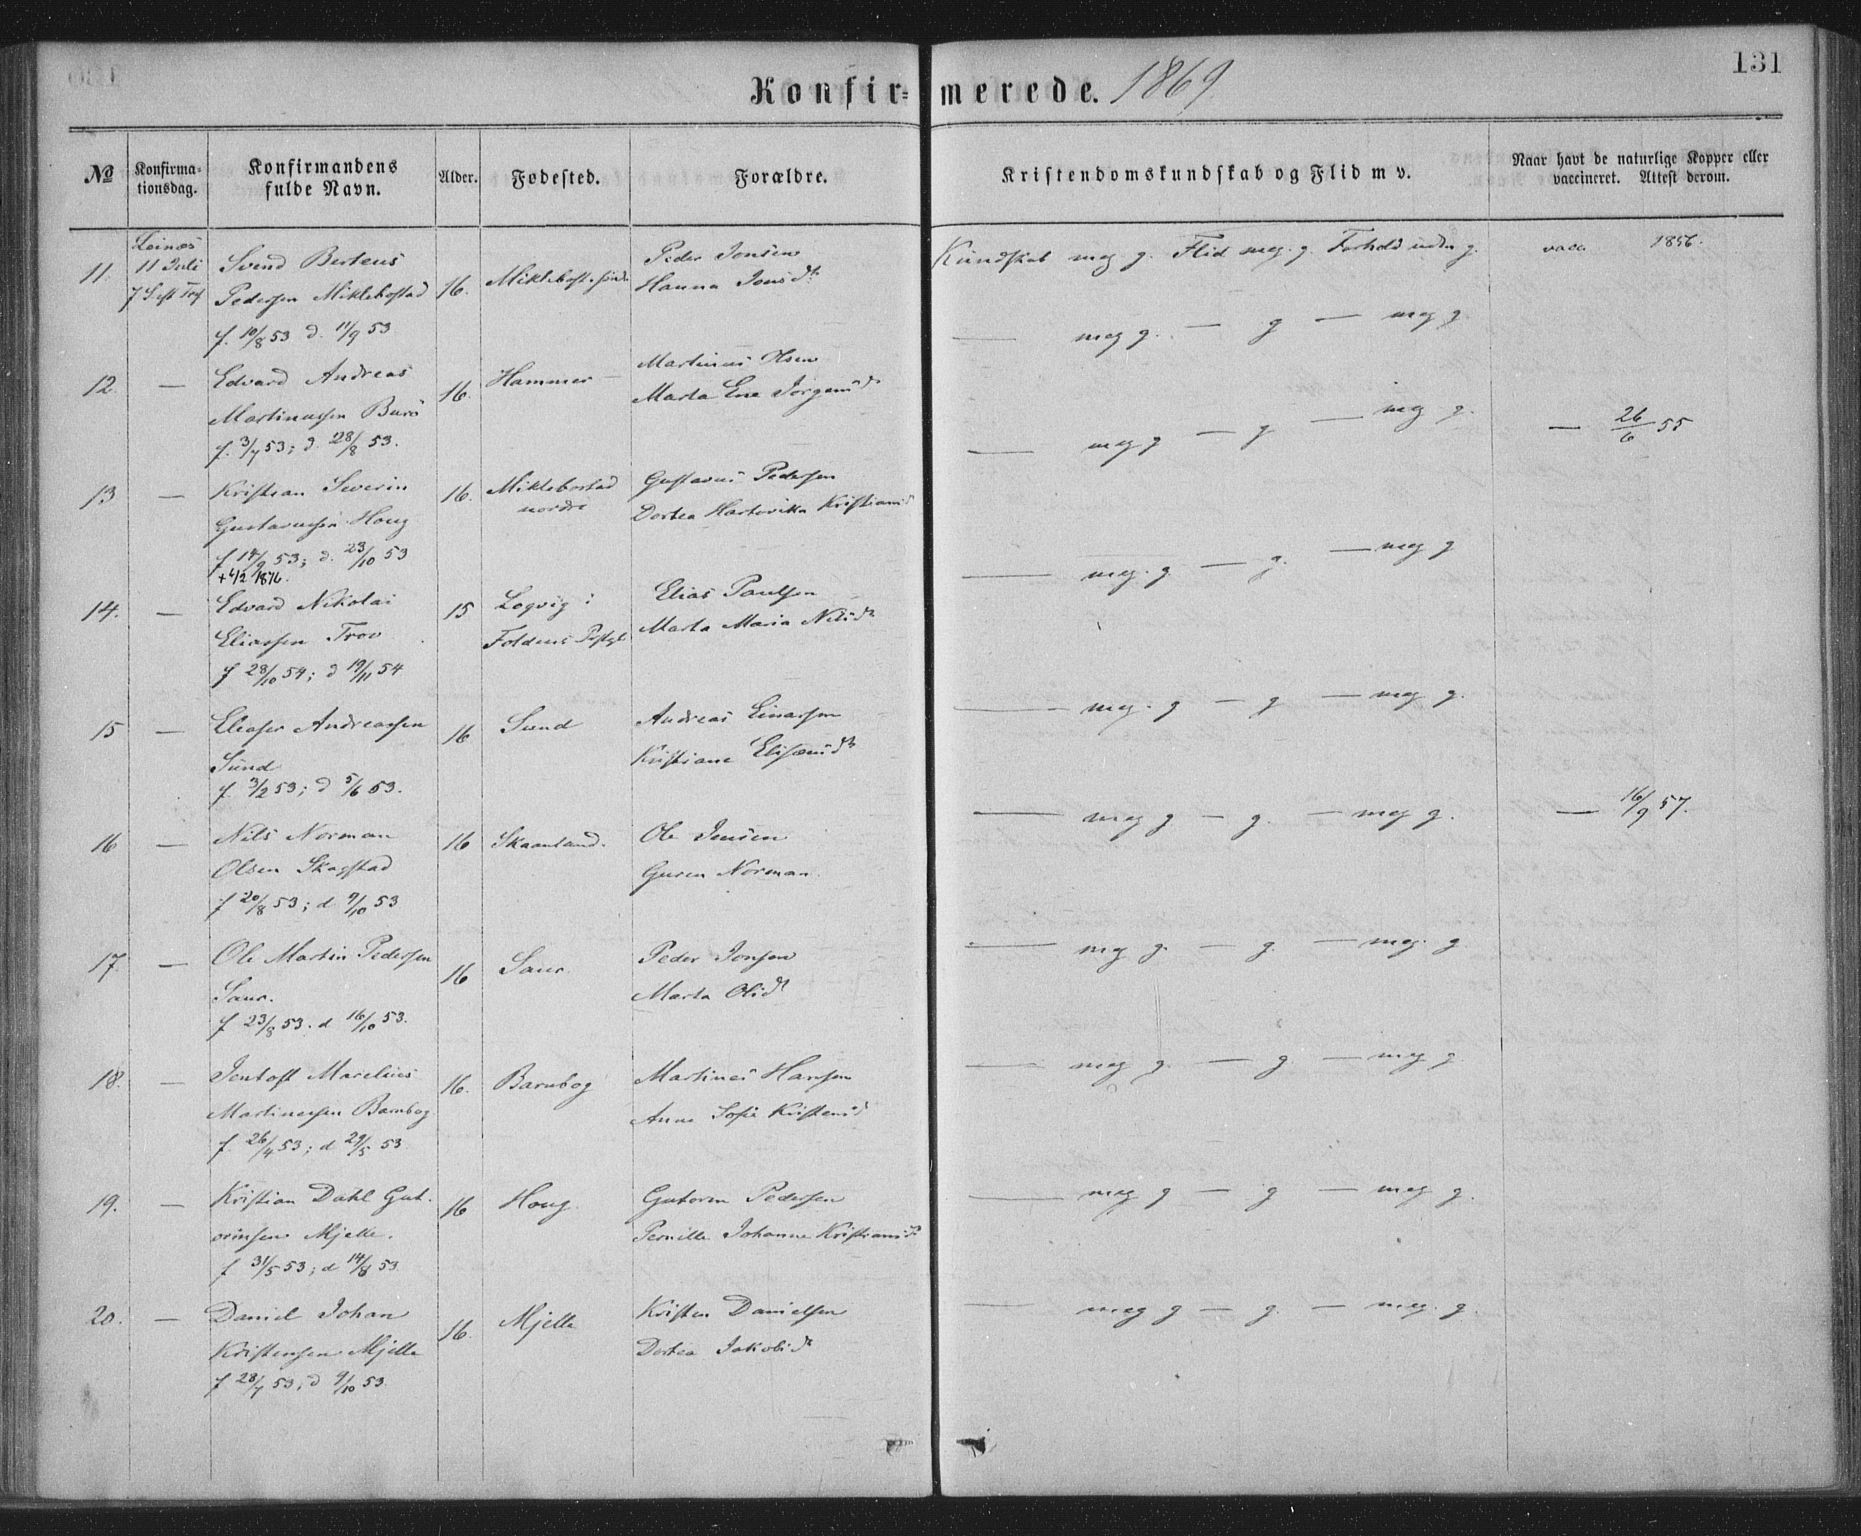 Konfirmerede. 1869
131
№
Konfirmationsdag.
Konfirmandens fulde Navn.
Alder.
Fødested.
Forældre.
Kristendomskundskab og Flid m v.
Naar havt de naturlige Kopper eller vaccineret. Attest derom.
11. Leines 11 Juli 7 S. eft Tref Svend Berteus 16. Miklebost. søndr Peder Jonsen Kundskab meg g. Flid meg. g. Forhold udm g. vacc 1856.
Pedersen Miklebostad Hanna Jonsdt
f. 10/8 53 d. 11/9 53
12. — Edvard Andreas 16. Hammer Martinus Olsen — meg g. — g — meg g.
Martinussen Burø Marta Ene Jørgensd
f. 3/7 53; d. 28/8 53.
13 — Kristian Severin 16. Miklebostad nordre Gustavus Pedersen — meg g — g — meg g. — 26/6 55
Gustavussen Houg Dortea Hartvikka Kristiansd
f 14/9 53; d. 23/10 53
+ 4/2 1876.
14. — Edvard Nikolai 15 Løgvig i Elias Paulsen — meg. g — g. — meg g
Eliassen Trov Foldens Prstgl Marta Maria Nilsdt
f 28/10 54; d 19/11 54
15 — Eleaser Andreassen 16 Sund Andreas Einarsen — meg. g — g — meg g.
Sund Kristiane Elisæusdt
f. 3/2 53; d 5/6 53.
16 — Nils Norman 16 Skaanland. Ole Jensen — meg g — g. — meg g. — 16/9 57.
Olsen Skagstad Guren Norman.
f 20/8 53; d 9/10 53
17 — Ole Martin Pedersen 16 Saur. Peder Jonsen — meg g. — g. — meg. g
Saur. Marta Olsdt
f 23/8 53. d 16/10 53.
18. — Jentoft Marelius 16. Barnbog Martines Hansen — meg g. — g. — meg g.
Martinessen Barnbog Anne Sofie Kristensd
f. 26/4 53; d 29/5 53
19. — Kristian Dahl Gut- 16 Houg. Gutorm Pedersen — meg g — g — meg g.
ormsen Mjelle. Pernille Johanne Kristiansdt
f 31/5 53; d 14/8 53
20. — Daniel Johan 16. Mjelle Kristen Danielsen — meg g — g. — meg. g.
Kristensen Mjelle Dortea Jakobsdt
f 28/7 53; d 9/10 53.